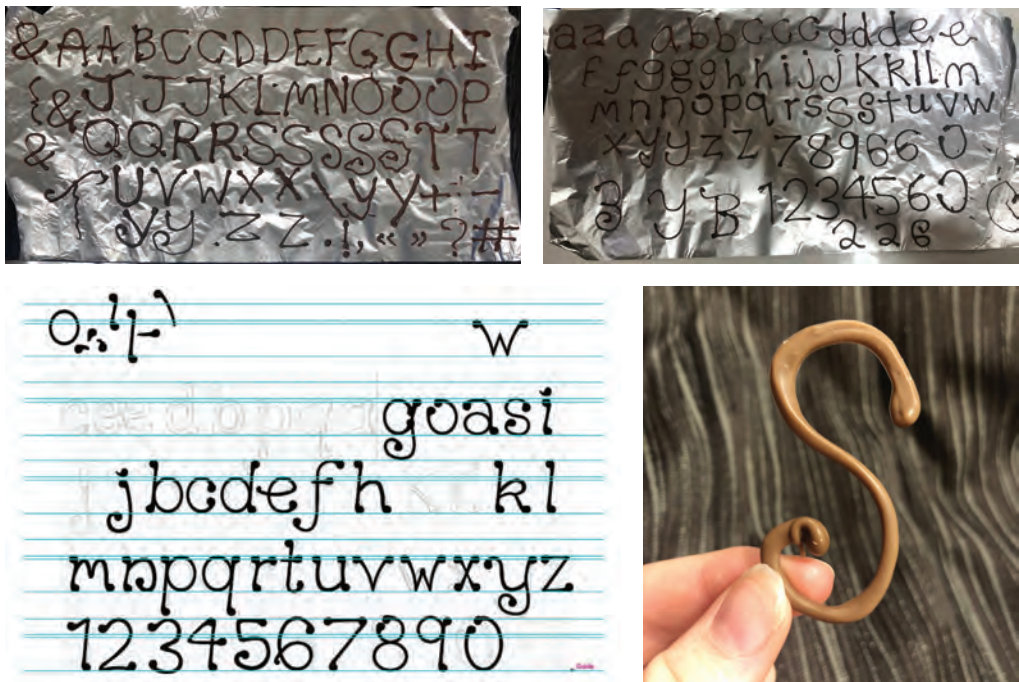 &AABCCDDEFGGHI
{&JJJKLMNOOOP
&QQRRSSSSSTT
UVWXX\yy+-
yy.zz.!,«»?#
aaaabbcccdddee
ffggghhijjkkllm
mnnopqrssstuvw
xyyzz789660
3yB1234560
226
w
goasi
jbcdefh kl
mnpqrtuvwxyz
1234567890
S